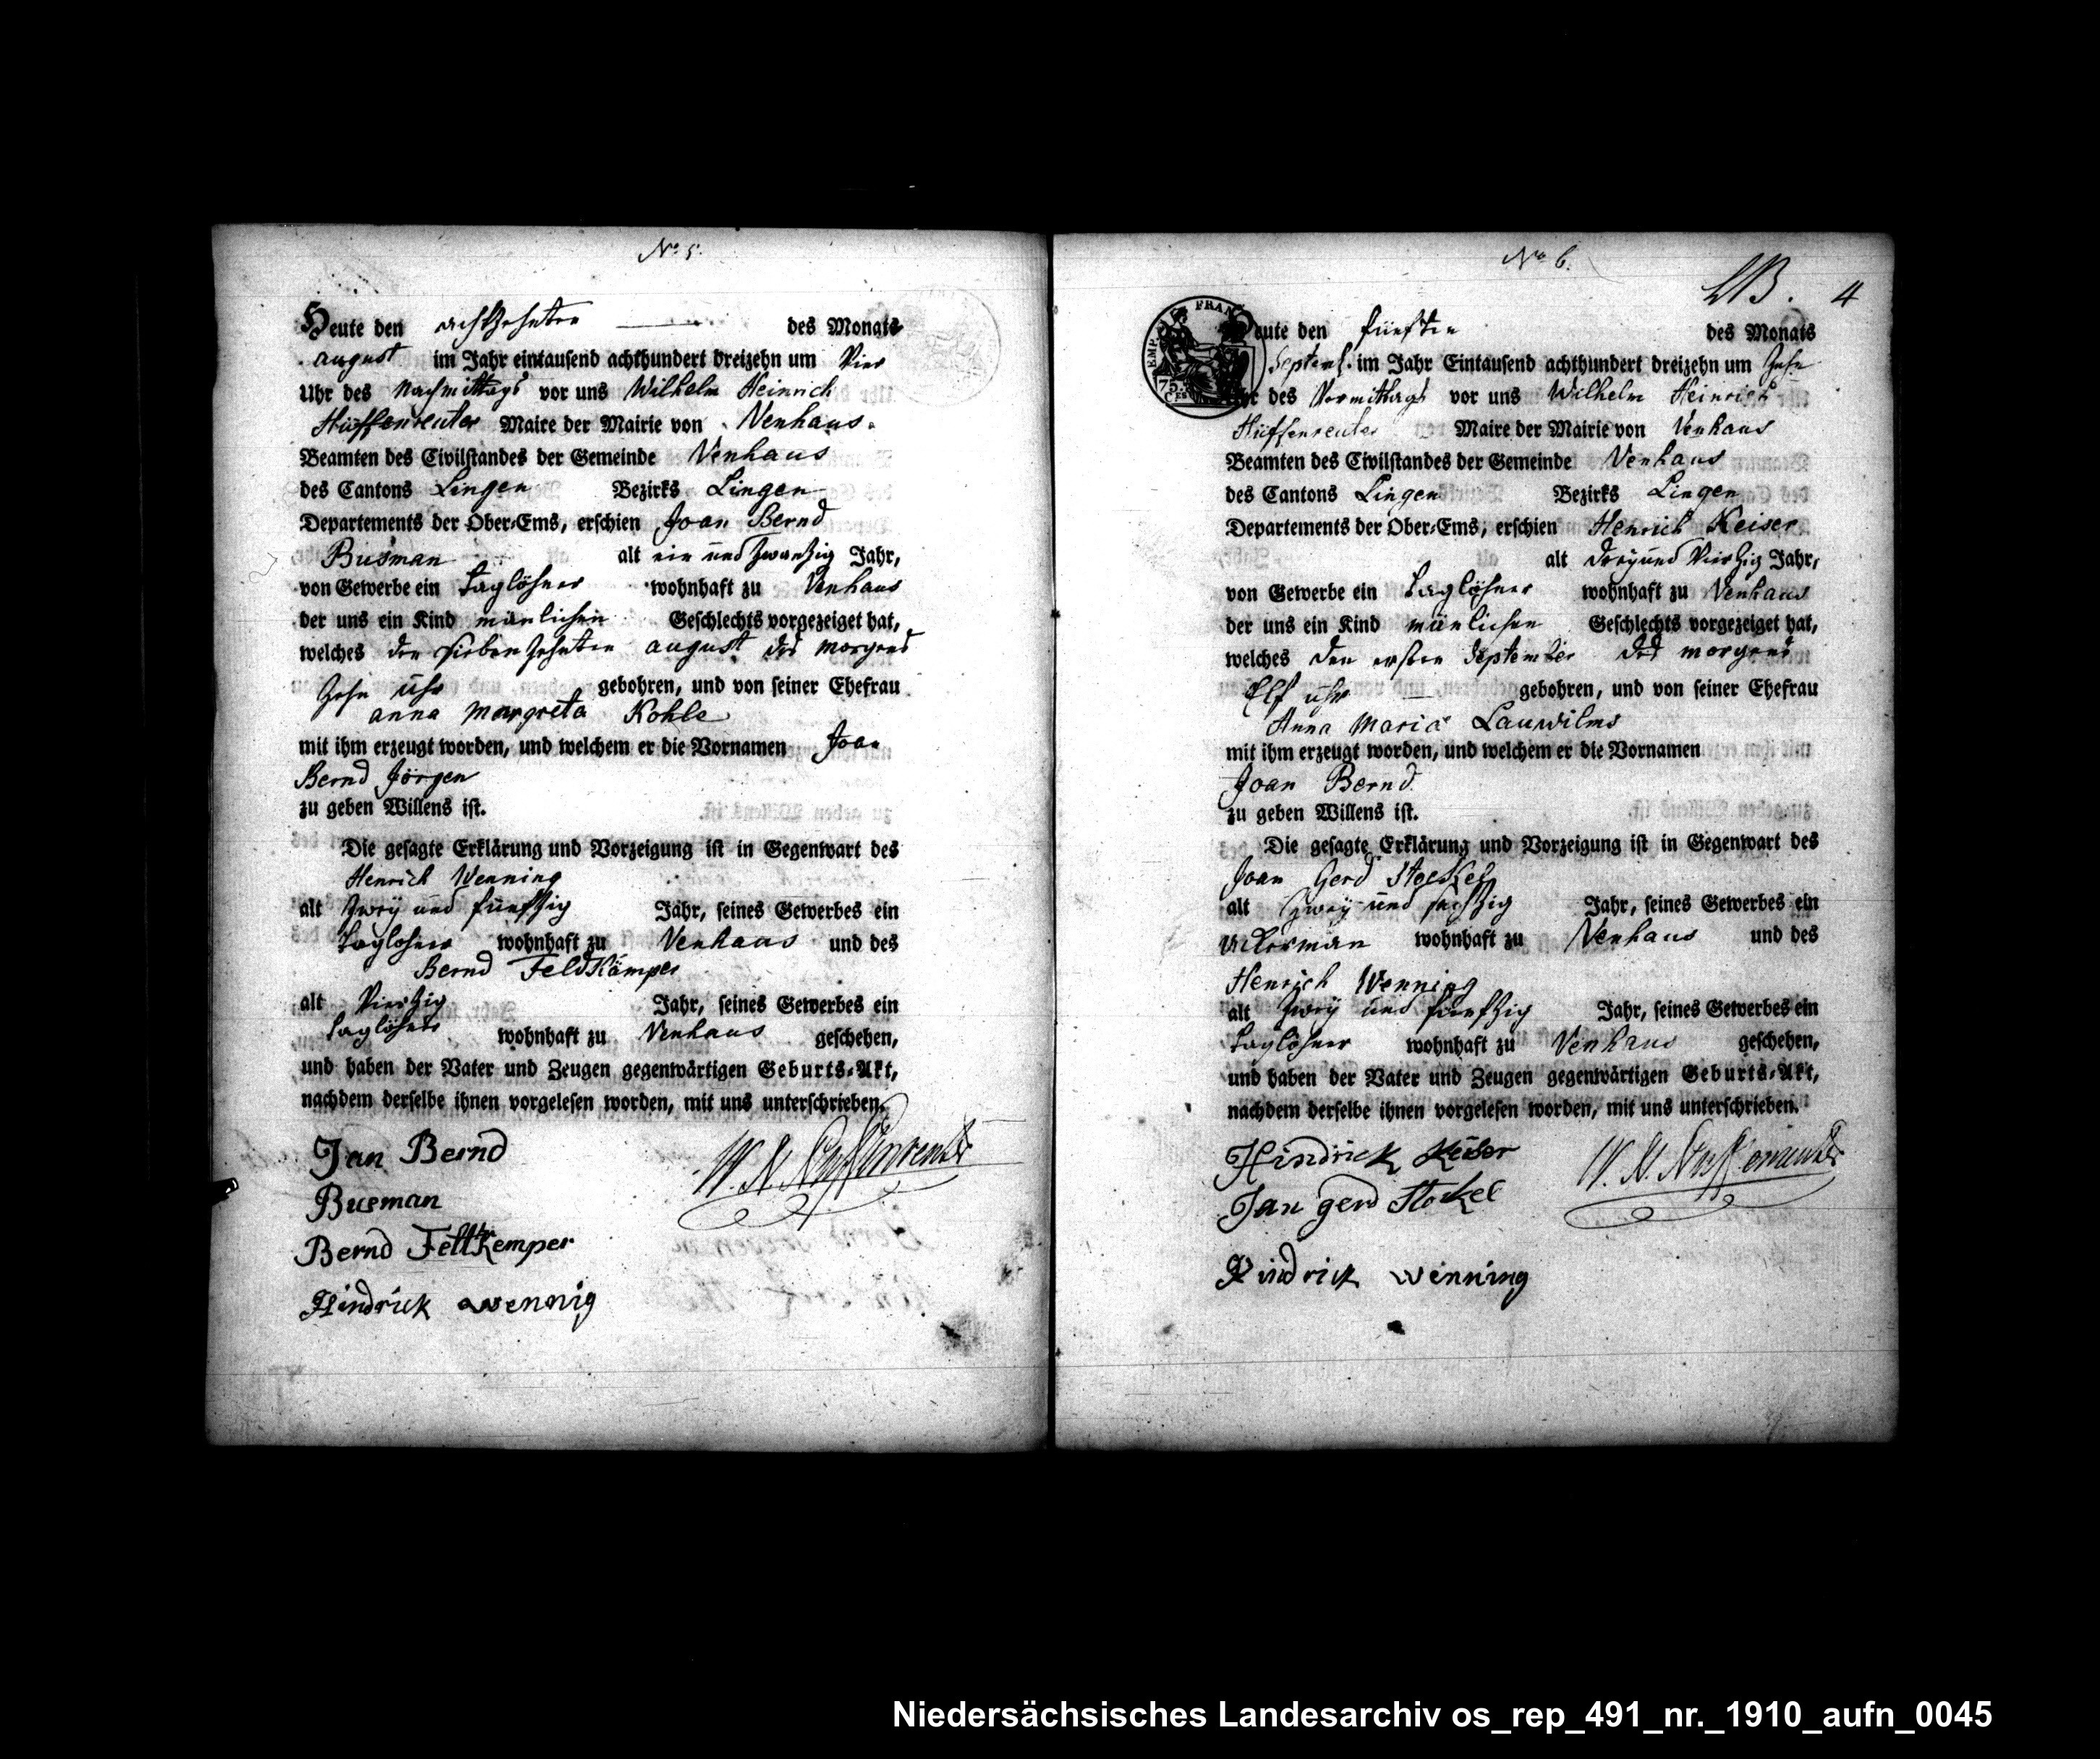 No 5.
Heute den achtzehnten des Monats
august im Jahr eintausend achthundert dreizehn um Vier
Uhr des Nachmittags vor uns Wilhelm Heinrich
Hüffenreuter Maire der Mairie von Venhaus.
Beamten des Civilstandes der Gemeinde Venhaus
des Cantons Lingen Bezirks Lingen
Departements der Ober-Ems, erschien Joan Bernd
Busman alt ein und zwanzig Jahr,
von Gewerbe ein Taglöhner wohnhaft zu Venhaus
der uns ein Kind mänlichen Geschlechts vorgezeiget hat,
welches den siebenzehnten august des morgens
Zehn uhr gebohren, und von seiner Ehefrau
anna Margreta Kohle
mit ihm erzeugt worden, und welchem er die Vornamen Joan
Bernd Jörgen
zu geben Willens ist.
Die gesagte Erklärung und Vorzeigung ist in Gegenwart des
Henrich Wenning
alt Zwey und fünfzig Jahr, seines Gewerbes ein
Taglohner wohnhaft zu Venhaus und des
Bernd FeldKämper
alt Vierzig Jahr, seines Gewerbes ein
Taglöhner wohnhaft zu Venhaus geschehen,
und haben der Vater und Zeugen gegenwärtigen Geburts-Akt,
nachdem derselbe ihnen vorgelesen worden, mit uns unterschrieben.
Jan Bernd
Busman
W. H. Hüffenreuter
Bernd Feltkemper
Hindrick wennig
No 6.
4
EMPIRE FRAN
75.
Heute den fünften des Monats
Septemb. im Jahr Eintausend achthundert dreizehn um Zehn
Uhr des Vormittags vor uns Wilhelm Heinrich
Hüffenreuter Maire der Mairie von Venhaus
Beamten des Civilstandes der Gemeinde Venhaus
des Cantons Lingen Bezirks Lingen
Departements der Ober-Ems, erschien Henrich Keiser
alt drey und Vierzig Jahr,
von Gewerbe ein Taglöhner wohnhaft zu Venhaus
der uns ein Kind mänlichen Geschlechts vorgezeiget hat,
welches den ersten September des morgens
Elf uhr gebohren, und von seiner Ehefrau
Anna Maria Lauwilms
mit ihm erzeugt worden, und welchem er die Vornamen
Joan Bernd
zu geben Willens ist.
Die gesagte Erklärung und Vorzeigung ist in Gegenwart des
Joan Gerd Stoekel
alt Zwey und sechzig Jahr, seines Gewerbes ein
Ackerman wohnhaft zu Venhaus und des
Henrich Wenning
alt Zwey und fünfzig Jahr, seines Gewerbes ein
Taglöhner wohnhaft zu Venhaus geschehen,
und haben der Vater und Zeugen gegenwärtigen Geburts-Akt,
nachdem derselbe ihnen vorgelesen worden, mit uns unterschrieben.
Hindrick Keiser
W. H. Hüffenreuter
Jan gerd Stockel
Hindrick wenning
Niedersächsisches Landesarchiv os_rep_491_nr._1910_aufn_0045